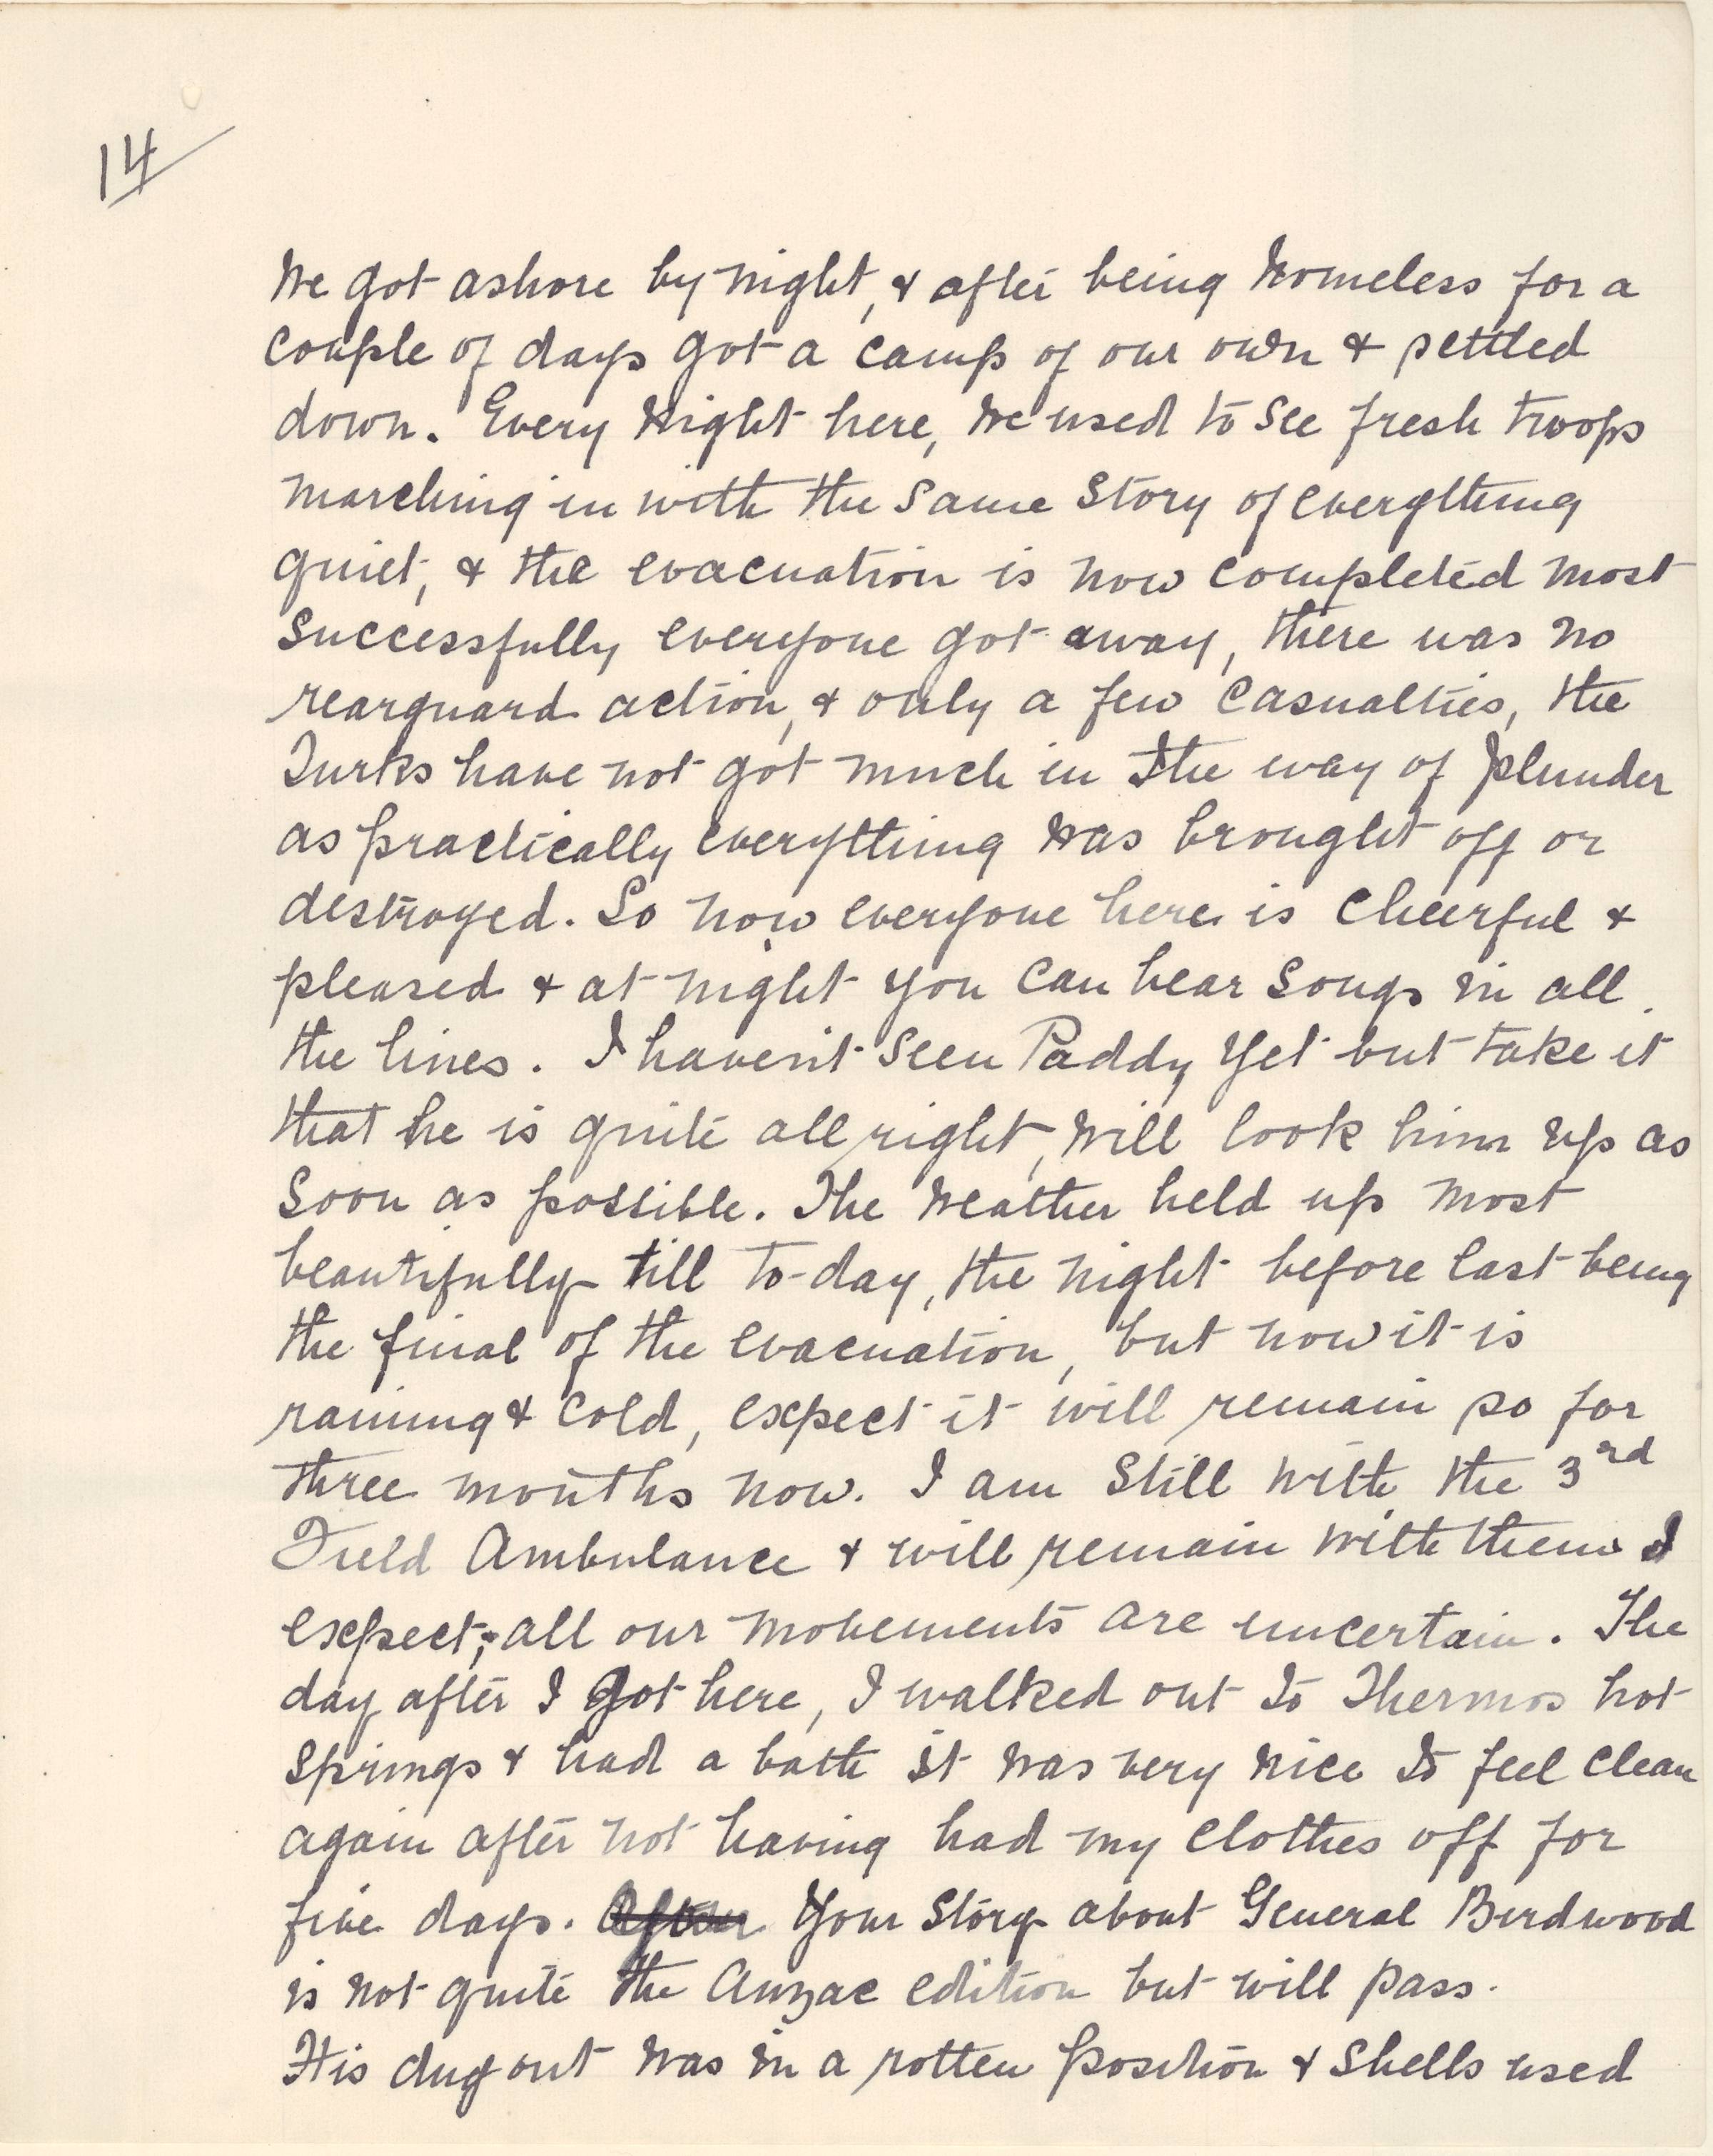 14
We got ashore by night, & after being homeless for a
couple of days got a camp of our own & settled
down. Every Night here, we used to see fresh troops
marching in with the same story of everything
quiet, & the evacuation is now completed most
successfully everyone got away, there was no
rearguard action, & only a few casualties, the
Turks have not got much in the way of plunder
as practically everything was brought off or
destroyed. So now everyone here is cheerful &
pleased & at night you can hear songs in all
the lines. I haven't seen Paddy yet but take it
that he is quite all right, will look him up as
soon as possible. The weather held up most
beautifully till to-day, the night before last being
the final of the evacuation, but now it is
raining & cold, expect it will remain so for
three months now. I am still with the 3rd
Field Ambulance & will remain with them I
expect; all our movements are uncertain. The
day after I got here, I walked out to Thermos hot
springs & had a bath it was very nice to feel clean
again after not having had my clothes off for
five days. After Your story about General Birdwood
is not quite the Anzac edition but will pass.
His dug out was in a rotten position & shells used